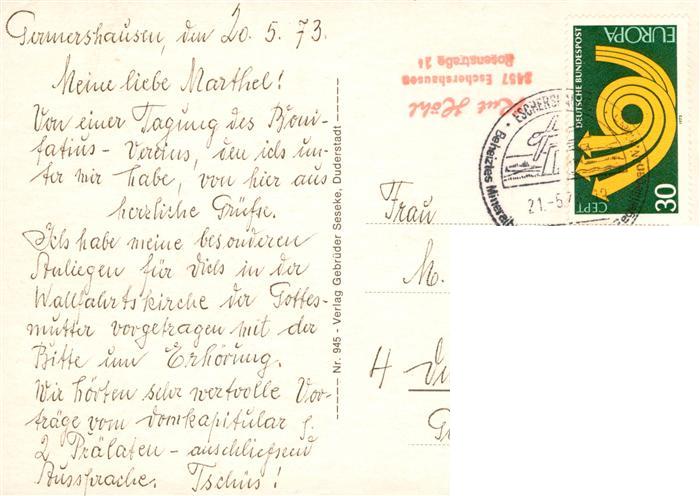 Germershausen, den 20.5.73.
Meine liebe Marthel!
Von einer Tagung des Boni-
fatius-Vereins, den ich un-
ter mir habe, von hier aus
herzliche Grüße.
Ich habe meine besonderen
Anliegen für Dich in der
Wallfahrtskirche der Gottes-
mutter vorgetragen mit der
Bitte um Erhörung.
Wir hörten sehr wertvolle Vor-
träge vom Domkapitular
2 Prälaten - anschließend
Aussprache. Tschüs!
Nr. 945 - Verlag Gebrüder Seseke, Duderstadt
3457 Eschershausen
Rosenstraße 14
Frau
M.
4
DEUTSCHE BUNDESPOST
EUROPA
CEPT
30
1973
ESCHERSHAUSEN
Beheiztes
21.-5.7